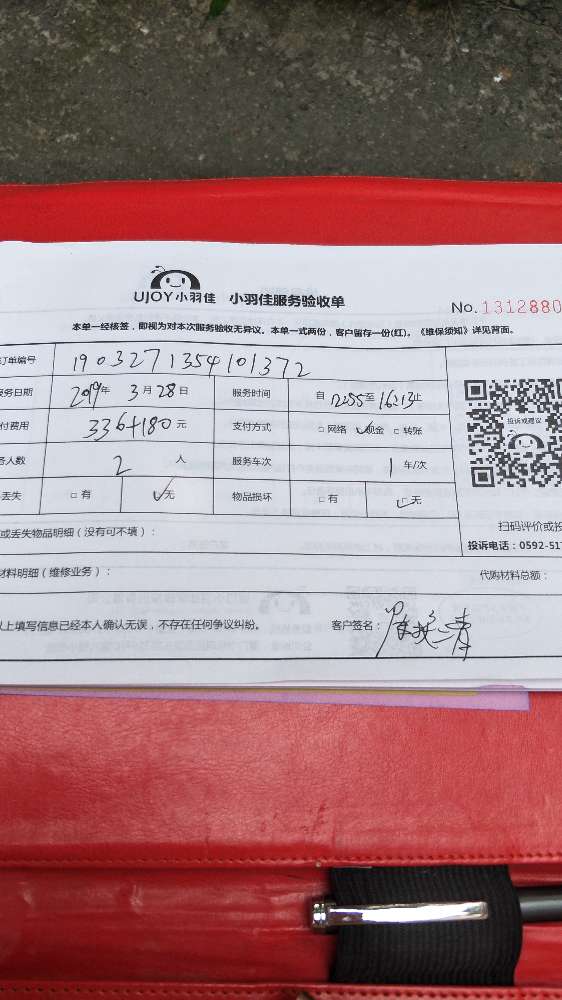 UJOY小羽佳 小羽佳服务验收单
No.1312880
本单一经核签,即视为对本次服务验收无异议。本单一式两份,客户留存一份(红)。《维保须知》详见背面。
订单编号 1903271354101372
服务日期 2019年 3月28日 服务时间 自 12:55至 16:13止
付费用 336+180元 支付方式 □网络 ✓现金 □转账
务人数 2 人 服务车次 1 车/次
丢失 □有 ✓无 物品损坏 □有 ✓无
投诉或建议
扫码评价或投
投诉电话:0592-517
或丢失物品明细(没有可不填):
材料明细(维修业务): 代购材料总额:
以上填写信息已经本人确认无误,不存在任何争议纠纷。 客户签名: